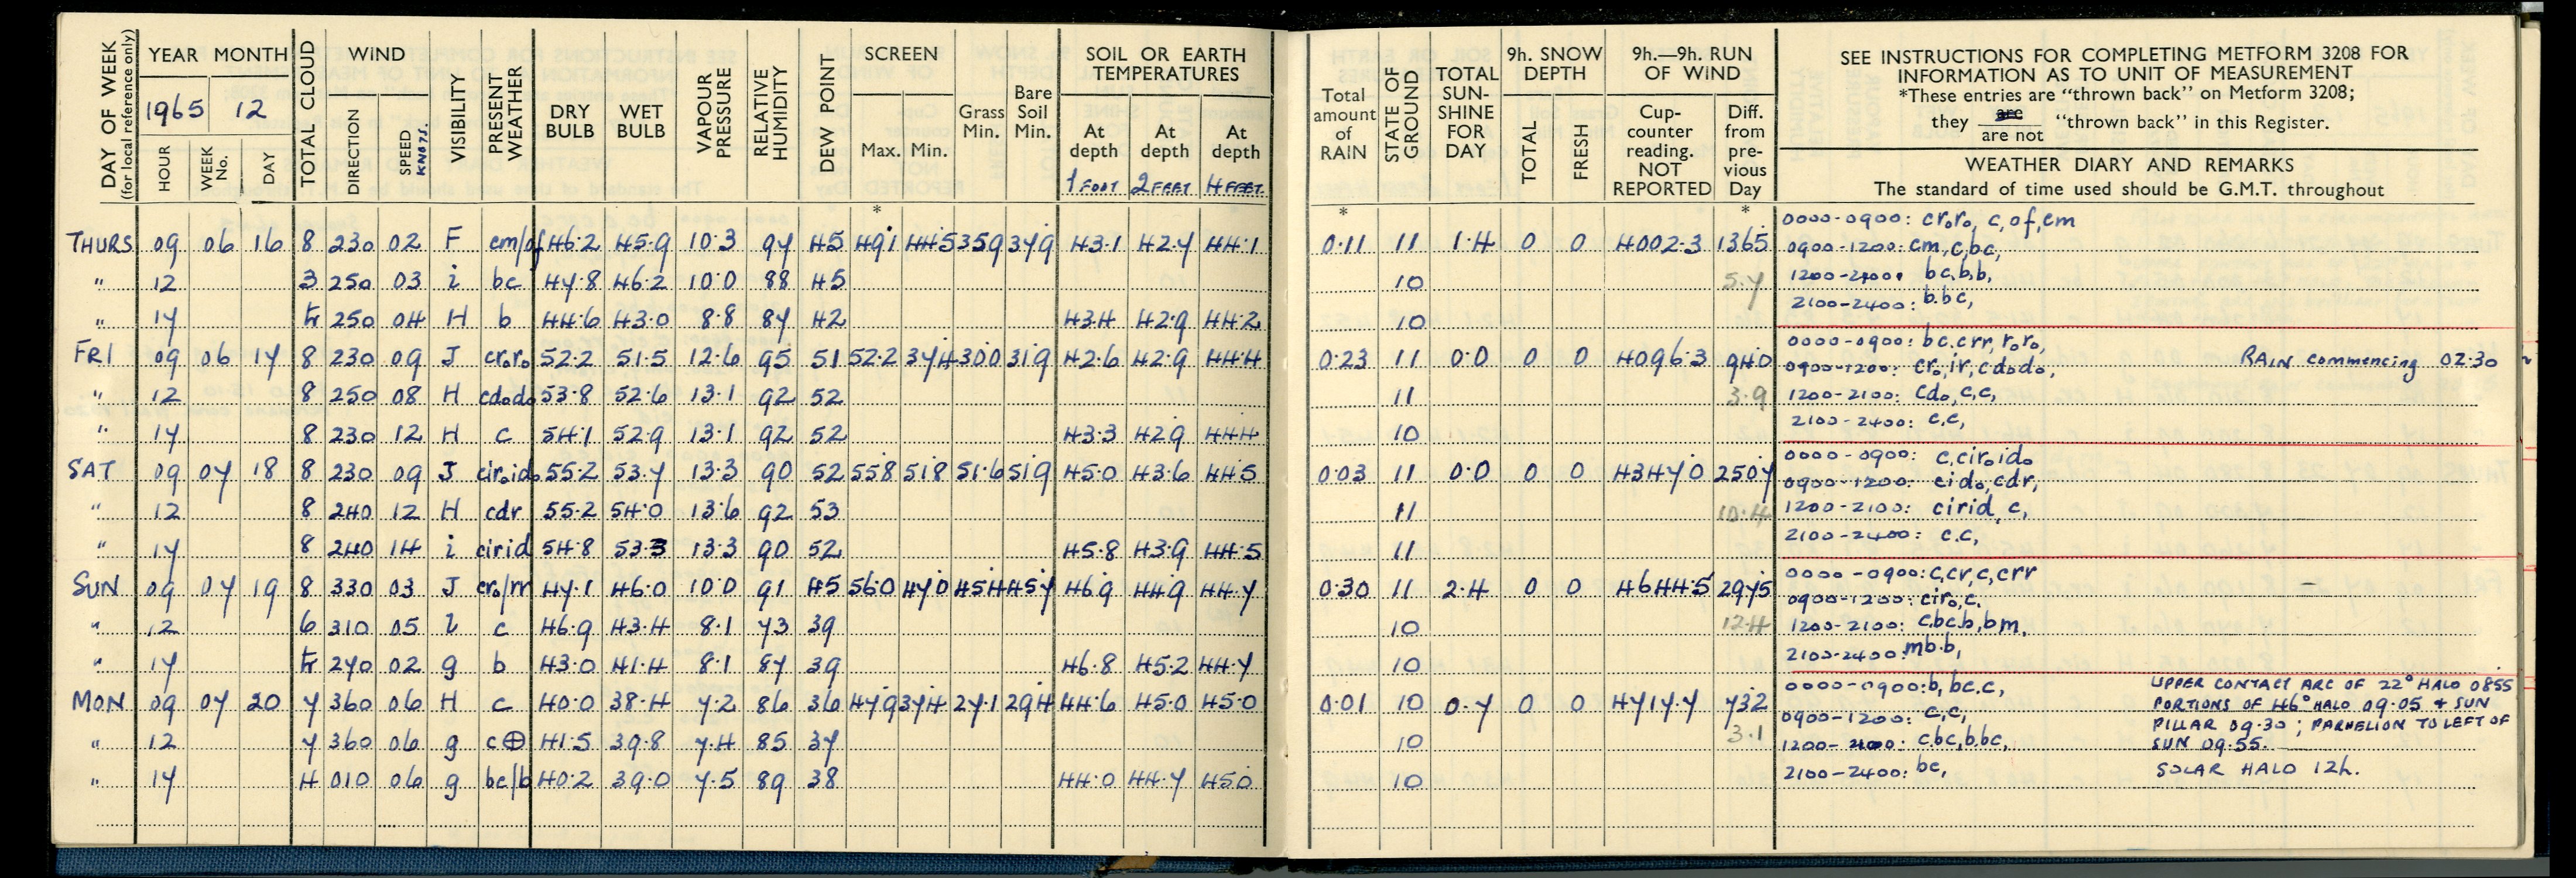 DAY OF WEEK (for local reference only)
YEAR MONTH
1965 12
HOUR WEEK No. DAY
TOTAL CLOUD
WIND
DIRECTION SPEED KNOTS.
VISIBILITY
PRESENT WEATHER
DRY BULB
WET BULB
VAPOUR PRESSURE
RELATIVE HUMIDITY
DEW POINT
SCREEN
Max. Min.
Grass Min.
Bare Soil Min.
SOIL OR EARTH TEMPERATURES
At depth 1 FOOT
At depth 2 FEET
At depth 4 FEET
Total amount of RAIN
STATE OF GROUND
TOTAL SUN-SHINE FOR DAY
9h. SNOW DEPTH
TOTAL FRESH
9h.—9h. RUN OF WIND
Cup-counter reading. NOT REPORTED
Diff. from pre-vious Day
SEE INSTRUCTIONS FOR COMPLETING METFORM 3208 FOR
INFORMATION AS TO UNIT OF MEASUREMENT
*These entries are "thrown back" on Metform 3208;
they are / are not "thrown back" in this Register.
WEATHER DIARY AND REMARKS
The standard of time used should be G.M.T. throughout
* * *
THURS 09 06 16 8 230 02 F cm/of 46.2 45.9 10.3 97 45 49.1 44.5 35.9 37.9 43.1 42.7 44.1 0.11 11 1.4 0 0 4002.3 136.5
" 12 3 250 03 i bc 47.8 46.2 10.0 88 45 10 5.7
" 17 tr 250 04 H b 44.6 43.0 8.8 87 42 43.4 42.9 44.2 10
0000-0900: cr₀r₀, c, of, cm
0900-1200: cm, c, bc,
1200-2100: bc, b, b,
2100-2400: b.bc,
FRI 09 06 17 8 230 09 J cr₀r₀ 52.2 51.5 12.6 95 51 52.2 37.4 30.0 31.9 42.6 42.9 44.4 0.23 11 0.0 0 0 4096.3 94.0
" 12 8 250 08 H cd₀d₀ 53.8 52.6 13.1 92 52 11 3.9
" 17 8 230 12 H c 54.1 52.9 13.1 92 52 43.3 42.9 44.4 10
0000-0900: bc.crr, r₀r₀,
0900-1200: cr₀, ir, cd₀d₀,
1200-2100: cd₀, c, c,
2100-2400: c.c,
RAIN commencing 02.30
SAT 09 07 18 8 230 09 J cir₀id₀ 55.2 53.7 13.3 90 52 55.8 51.8 51.6 51.9 45.0 43.6 44.5 0.03 11 0.0 0 0 4347.0 250.7
" 12 8 240 12 H cdr 55.2 54.0 13.6 92 53 11 10.4
" 17 8 240 14 i cirid 54.8 53.3 13.3 90 52 45.8 43.9 44.5 11
0000-0900: c, cir₀id₀
0900-1200: cid₀, cdr,
1200-2100: cirid, c,
2100-2400: c.c,
SUN 09 07 19 8 330 03 J cr₀/rr 47.1 46.0 10.0 91 45 56.0 47.0 45.4 45.7 46.9 44.9 44.7 0.30 11 2.4 0 0 4644.5 297.5
" 12 6 310 05 i c 46.9 43.4 8.1 73 39 10 12.4
" 17 tr 270 02 g b 43.0 41.4 8.1 87 39 46.8 45.2 44.7 10
0000-0900: c, cr, c, crr
0900-1200: cir₀, c.
1200-2100: c.bc.b, bm,
2100-2400: mb.b,
MON 09 07 20 7 360 06 H c 40.0 38.4 7.2 86 36 47.9 37.4 27.1 29.4 44.6 45.0 45.0 0.01 10 0.7 0 0 4717.7 73.2
" 12 7 360 06 g c⊕ 41.5 39.8 7.4 85 37 10 3.1
" 17 4 010 06 g bc/b 40.2 39.0 7.5 89 38 44.0 44.7 45.0 10
0000-0900: b, bc.c,
0900-1200: c, c,
1200-2100: c.bc, b.bc,
2100-2400: bc,
UPPER CONTACT ARC OF 22° HALO 0855
PORTIONS OF 46° HALO 09.05 & SUN
PILLAR 09.30; PARHELION TO LEFT OF
SUN 09.55.
SOLAR HALO 12h.